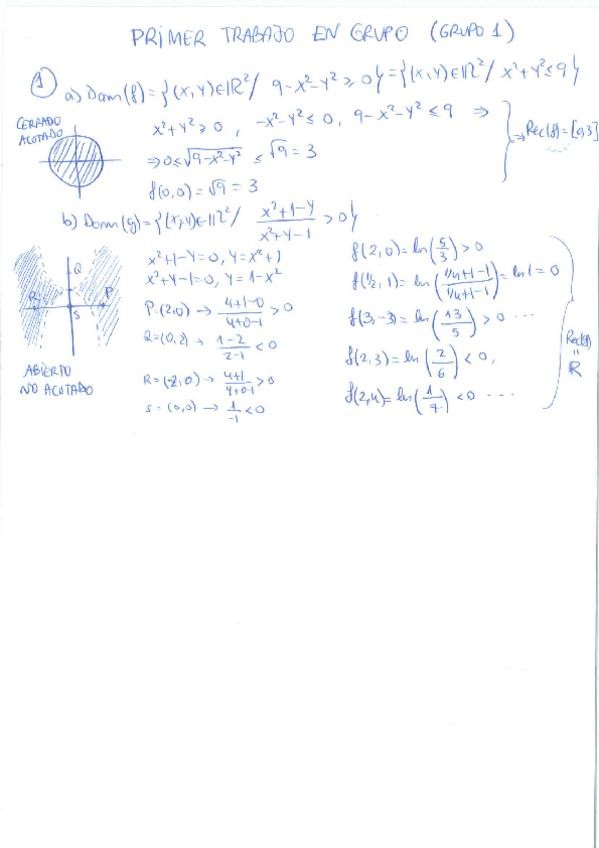 PRIMER TRABAJO EN GRUPO (GRUPO 1)
1 a) Dom(f) = {(x,y)∈ℝ²/ 9-x²-y² ≥ 0} = {(x,y)∈ℝ²/ x²+y² ≤ 9}
CERRADO
ACOTADO
x²+y² ≥ 0, -x²-y² ≤ 0, 9-x²-y² ≤ 9 ⇒
⇒ 0 ≤ √(9-x²-y²) ≤ √9 = 3
⇒ Rec(f) = [0,3]
f(0,0) = √9 = 3
b) Dom(g) = {(x,y)∈ℝ²/ (x²+1-y)/(x²+y-1) > 0}
Q
R
P
S
ABIERTO
NO ACOTADO
x²+1-y=0, y=x²+1
x²+y-1=0, y=1-x²
P=(2,0) → (4+1-0)/(4+0-1) > 0
Q=(0,2) → (1-2)/(2-1) < 0
R=(-2,0) → (4+1)/(4+0-1) > 0
S=(0,0) → 1/-1 < 0
f(2,0) = ln(5/3) > 0
f(1/2,1) = ln((1/4+1-1)/(1/4+1-1)) = ln 1 = 0
f(3,-3) = ln(13/5) > 0 ...
f(2,3) = ln(2/6) < 0,
f(2,4) = ln(1/7) < 0 ...
Rec(g)
=
ℝ